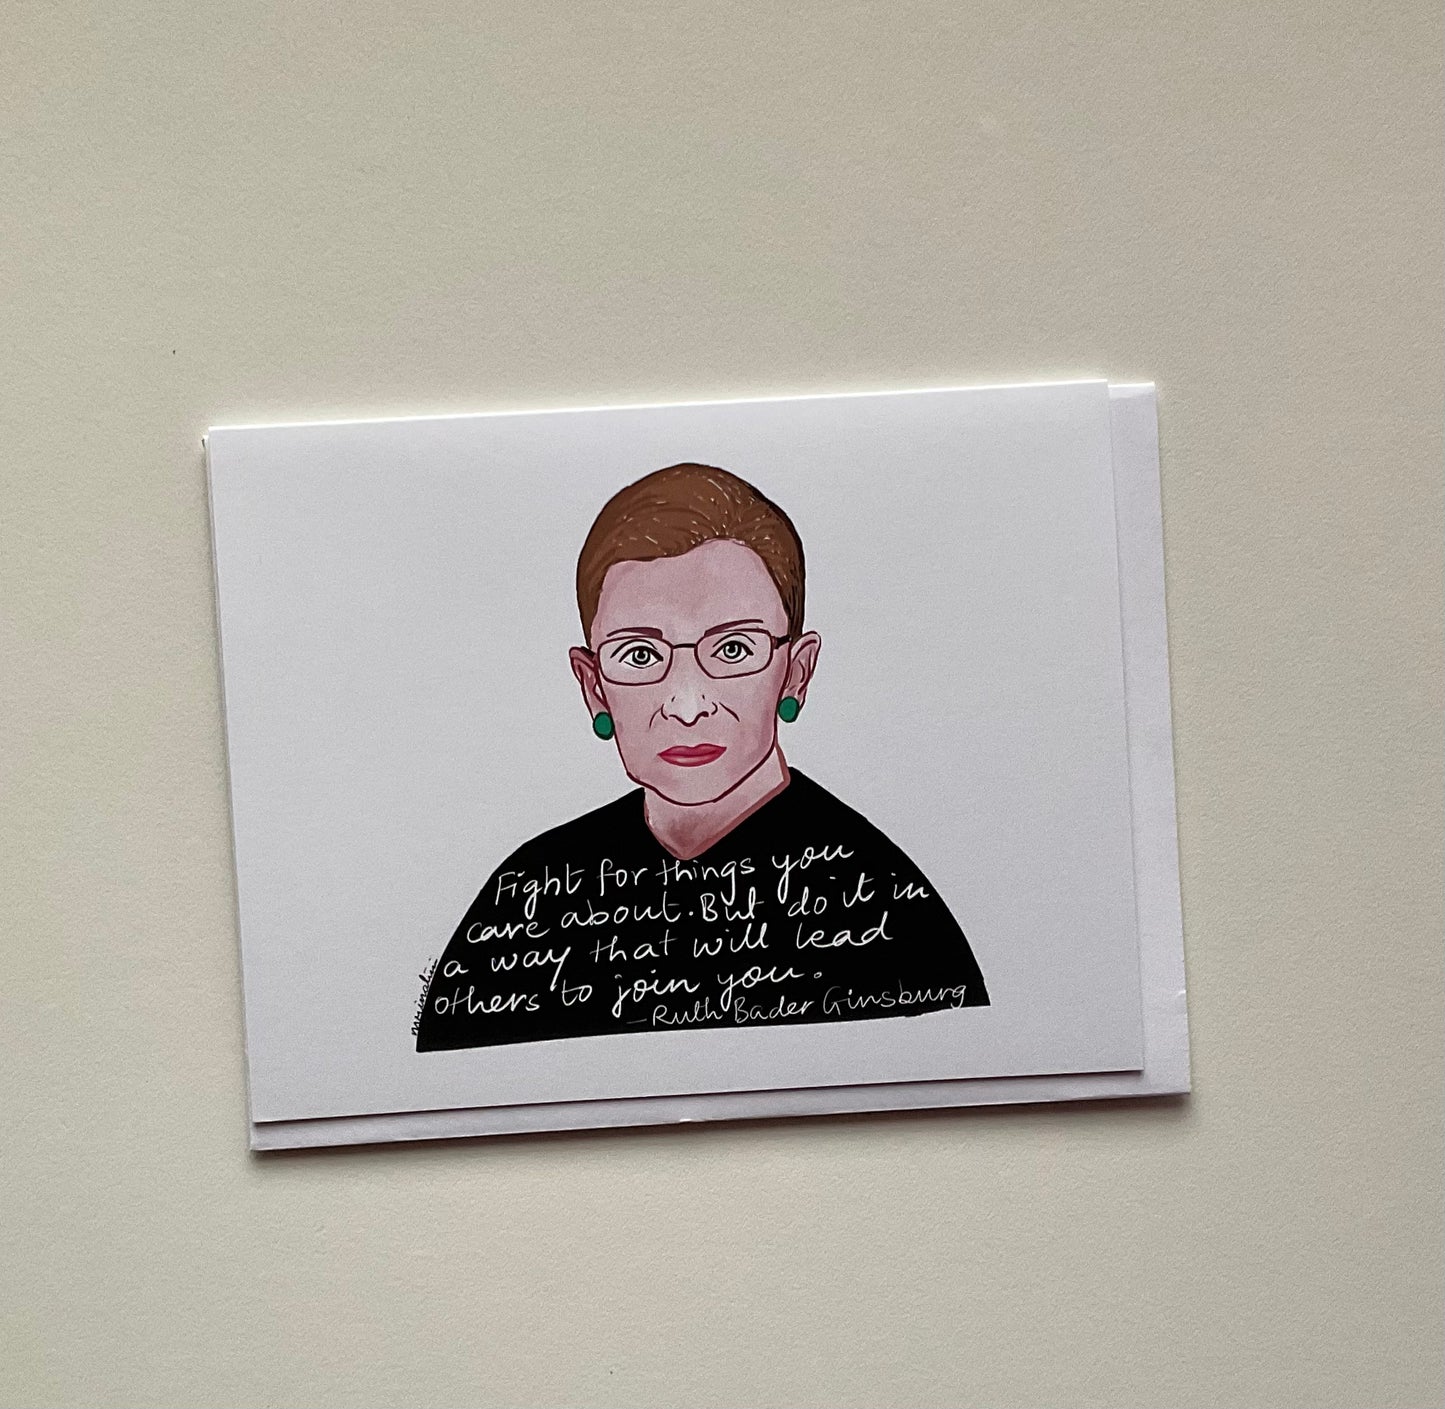 Fight for things you
care about. But do it in
a way that will lead
others to join you.
– Ruth Bader Ginsburg
mrinalini